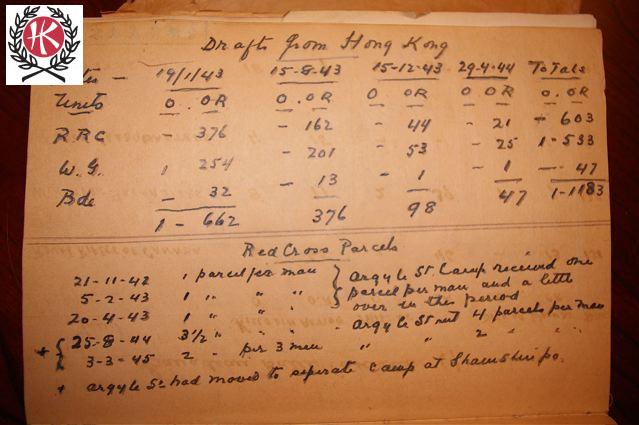 HK
Drafts from Hong Kong
- 19/1/43 15-8-43 15-12-43 29-4-44 Totals
Units O. OR O. OR O OR O OR O. OR
RRC - 376 - 162 - 44 - 21 - 603
W.G. 1 254 - 201 - 53 - 25 1-533
Bde - 32 - 13 - 1 - 1 - 47
1 - 662 376 98 47 1-1183
Red Cross Parcels
21-11-42 1 parcel per man } Argyle St. Camp received one
5-2-43 1 " " " } parcel per man and a little
20-4-43 1 " " " } over in the period
+ { 25-8-44 3½ " " " - Argyle St 4 parcels per man
3-3-45 2 " per 3 men " " 2 " " "
+ Argyle St had moved to seperate camp at Shamshuipo.